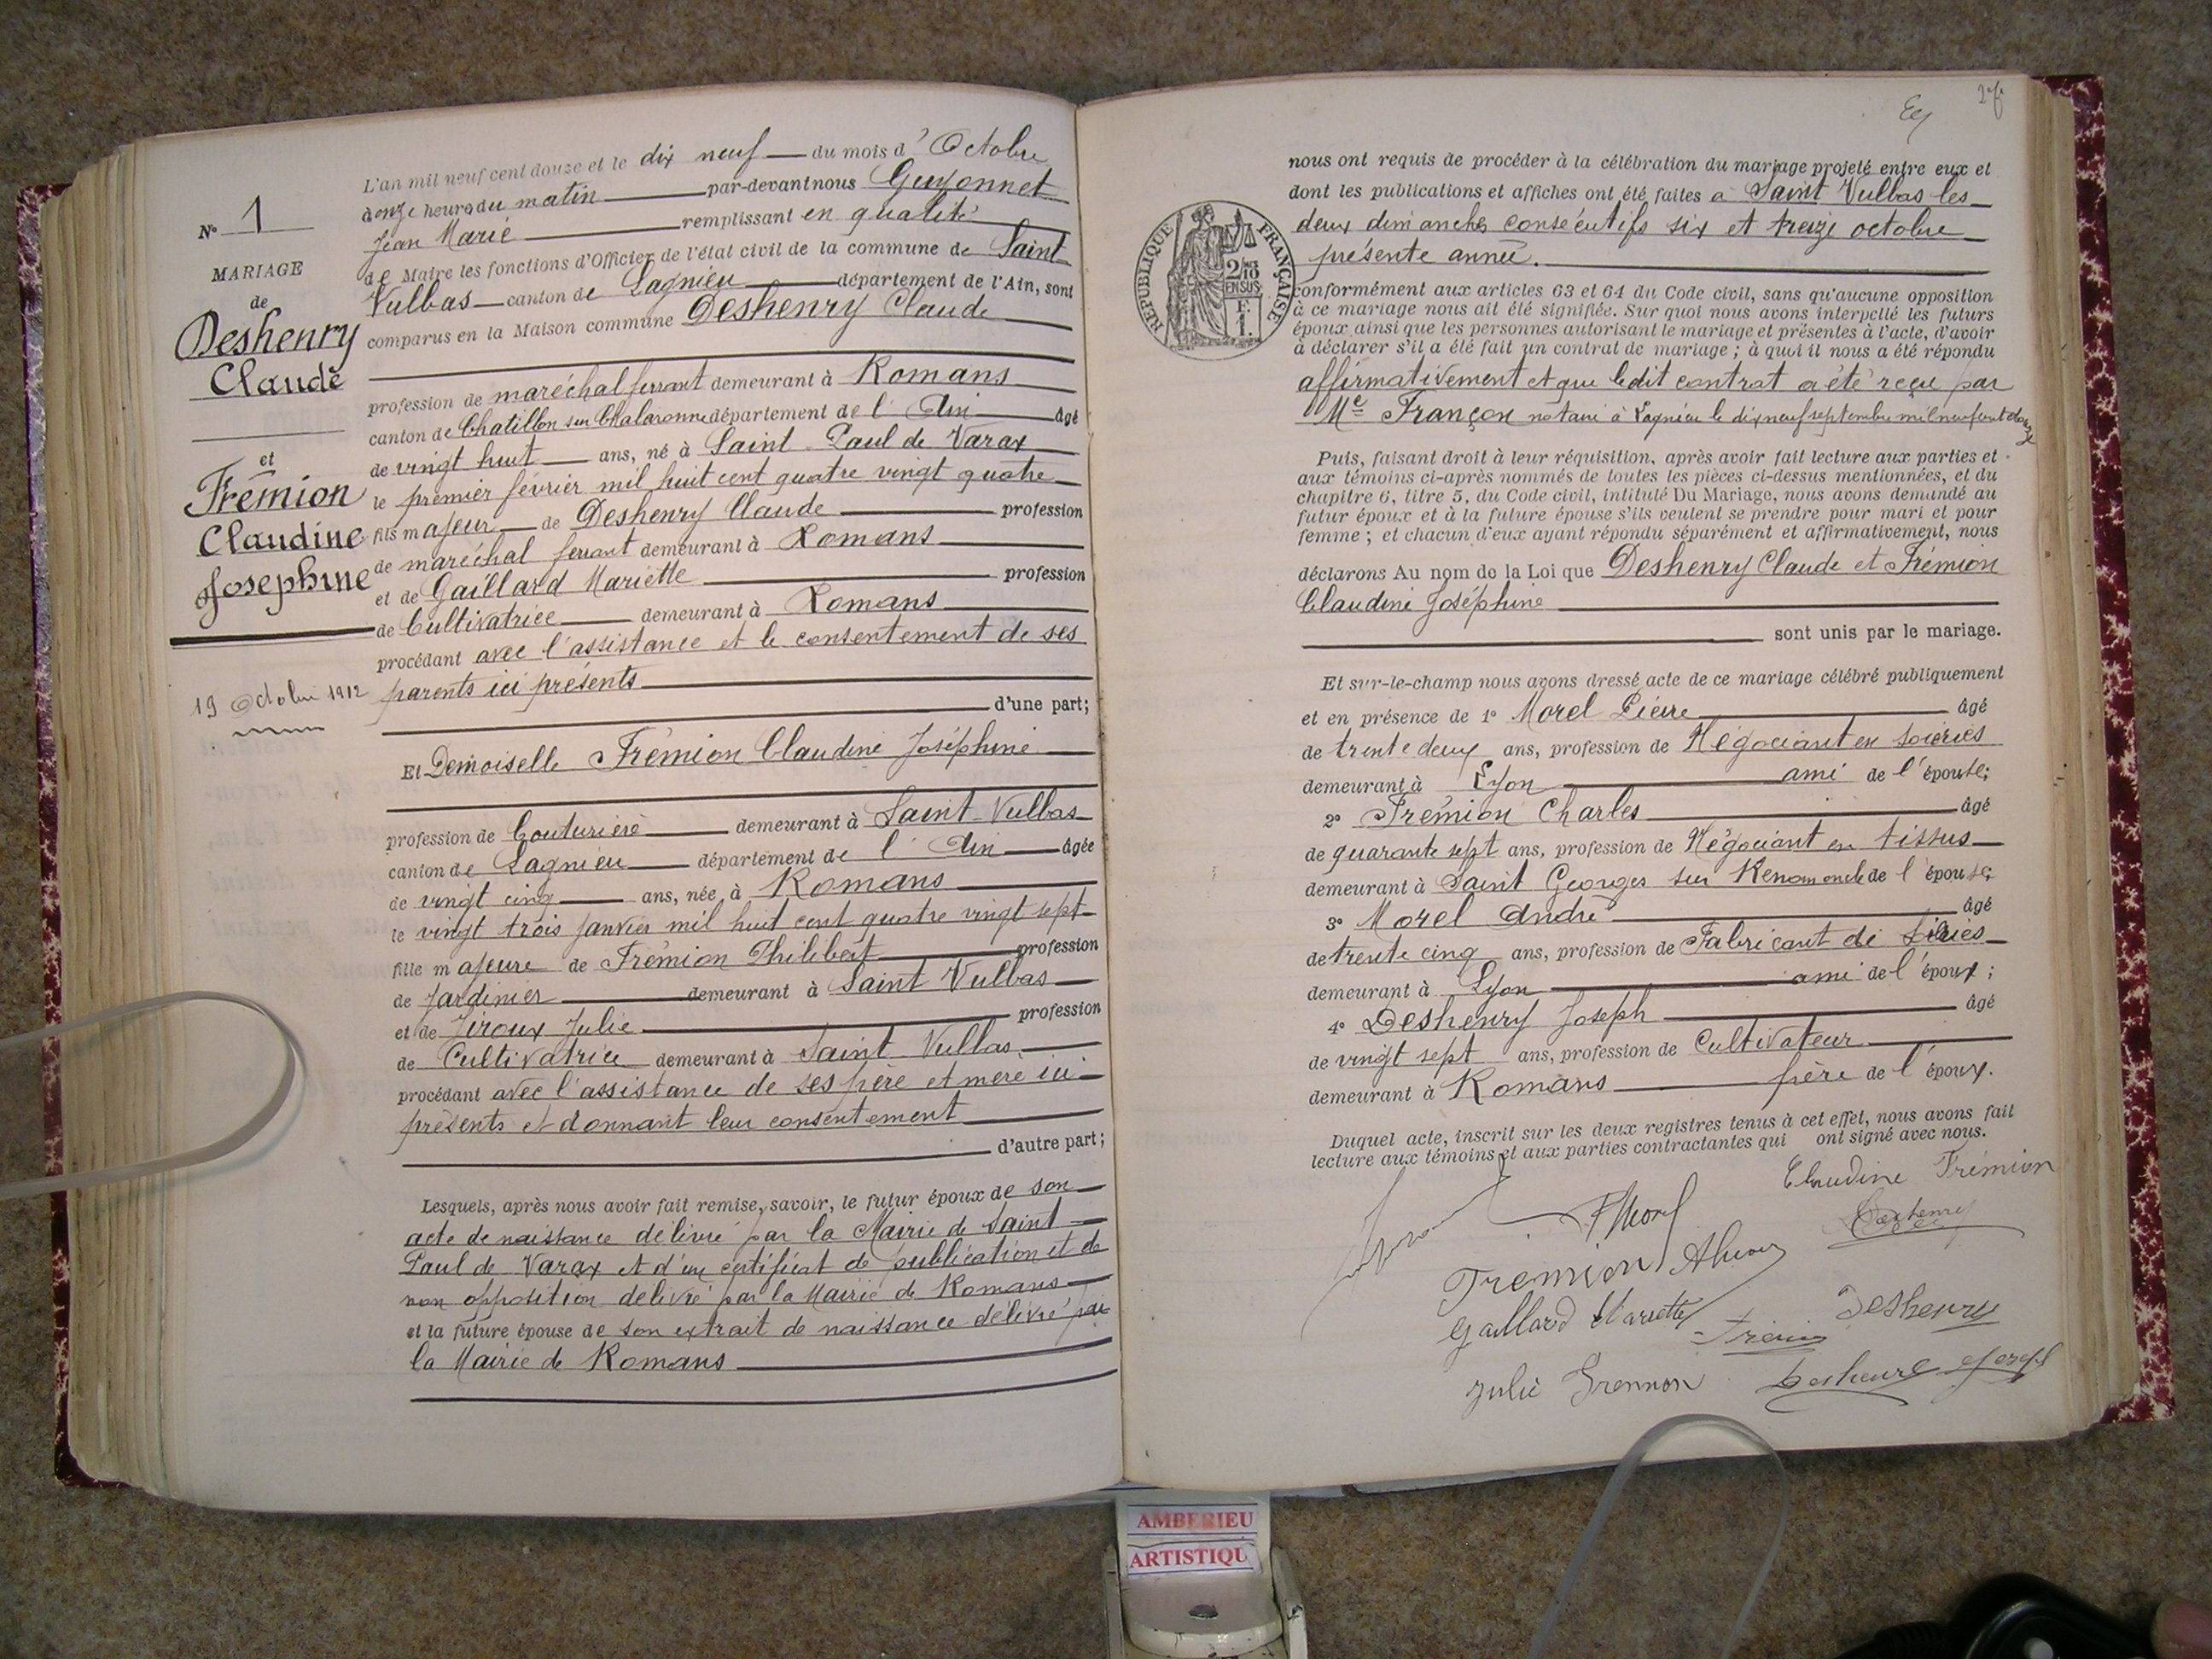 N° 1
MARIAGE
de
Deshenry
Claude
et
Frémion
Claudine
Josephine
19 Octobre 1912
L'an mil neuf cent douze et le dix neuf du mois d'Octobre
à onze heures du matin par-devant nous Guyonnet
Jean Marie remplissant en qualité
de Maire les fonctions d'Officier de l'état civil de la commune de Saint
Vulbas canton de Lagnieu département de l'Ain, sont
comparus en la Maison commune Deshenry Claude
profession de maréchal ferrant demeurant à Romans
canton de Chatillon sur Chalaronne département de l'Ain âgé
de vingt huit ans, né à Saint Paul de Varax
le premier février mil huit cent quatre vingt quatre
fils majeur de Deshenry Claude profession
de maréchal ferrant demeurant à Romans
et de Gaillard Mariette profession
de Cultivatrice demeurant à Romans
procédant avec l'assistance et le consentement de ses
parents ici présents
d'une part;
Et Demoiselle Frémion Claudine Joséphine
profession de Couturière demeurant à Saint Vulbas
canton de Lagnieu département de l'Ain âgée
de vingt cinq ans, née à Romans
le vingt trois janvier mil huit cent quatre vingt sept
fille majeure de Frémion Philibert profession
de Jardinier demeurant à Saint Vulbas
et de Jiroux Julie profession
de Cultivatrice demeurant à Saint Vulbas
procédant avec l'assistance de ses père et mère ici
présents et donnant leur consentement
d'autre part;
Lesquels, après nous avoir fait remise, savoir, le futur époux de son
acte de naissance délivré par la Mairie de Saint
Paul de Varax et d'un certificat de publication et de
non opposition délivré par la Mairie de Romans
et la future épouse de son extrait de naissance délivré par
la Mairie de Romans
nous ont requis de procéder à la célébration du mariage projeté entre eux et
dont les publications et affiches ont été faites à Saint Vulbas les
deux dimanches consécutifs six et treize octobre
présente année.
RÉPUBLIQUE FRANÇAISE
2/10 EN SUS
F. 1.
conformément aux articles 63 et 64 du Code civil, sans qu'aucune opposition
à ce mariage nous ait été signifiée. Sur quoi nous avons interpellé les futurs
époux ainsi que les personnes autorisant le mariage et présentes à l'acte, d'avoir
à déclarer s'il a été fait un contrat de mariage; à quoi il nous a été répondu
affirmativement et que ledit contrat a été reçu par
Me Françon notaire à Lagnieu le dix neuf septembre mil neuf cent douze
Puis, faisant droit à leur réquisition, après avoir fait lecture aux parties et
aux témoins ci-après nommés de toutes les pièces ci-dessus mentionnées, et du
chapitre 6, titre 5, du Code civil, intitulé Du Mariage, nous avons demandé au
futur époux et à la future épouse s'ils veulent se prendre pour mari et pour
femme; et chacun d'eux ayant répondu séparément et affirmativement, nous
déclarons Au nom de la Loi que Deshenry Claude et Frémion
Claudine Joséphine
sont unis par le mariage.
Et sur-le-champ nous avons dressé acte de ce mariage célébré publiquement
et en présence de 1° Morel Pierre âgé
de trente deux ans, profession de Négociant en soieries
demeurant à Lyon ami de l'épouse;
2° Frémion Charles âgé
de quarante sept ans, profession de Négociant en tissus
demeurant à Saint Georges sur Renom oncle de l'épouse;
3° Morel André âgé
de trente cinq ans, profession de Fabricant de soieries
demeurant à Lyon ami de l'époux;
4° Deshenry Joseph âgé
de vingt sept ans, profession de Cultivateur
demeurant à Romans frère de l'époux.
Duquel acte, inscrit sur les deux registres tenus à cet effet, nous avons fait
lecture aux témoins et aux parties contractantes qui ont signé avec nous.
Claudine Frémion
PMorel
Deshenry
Fremion
Gaillard Mariette
Deshenry
Julie Fremion
Deshenry Joseph
AMBERIEU
ARTISTIQU